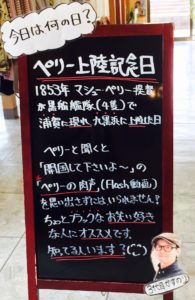 今日は何の日?
ペリー上陸記念日
1853年マシュー・ペリー提督
が黒船艦隊(4隻)で
浦賀に現れ、久里浜に上陸した日
ペリーと聞くと
「開国して下さいよ〜」の
「ペリーの肉声」(Flash動画)
を思い出さずにはいられません!
ちょっとブラックなお笑い好き
な人にオススメです
知ってる人います?
3代目かずのり